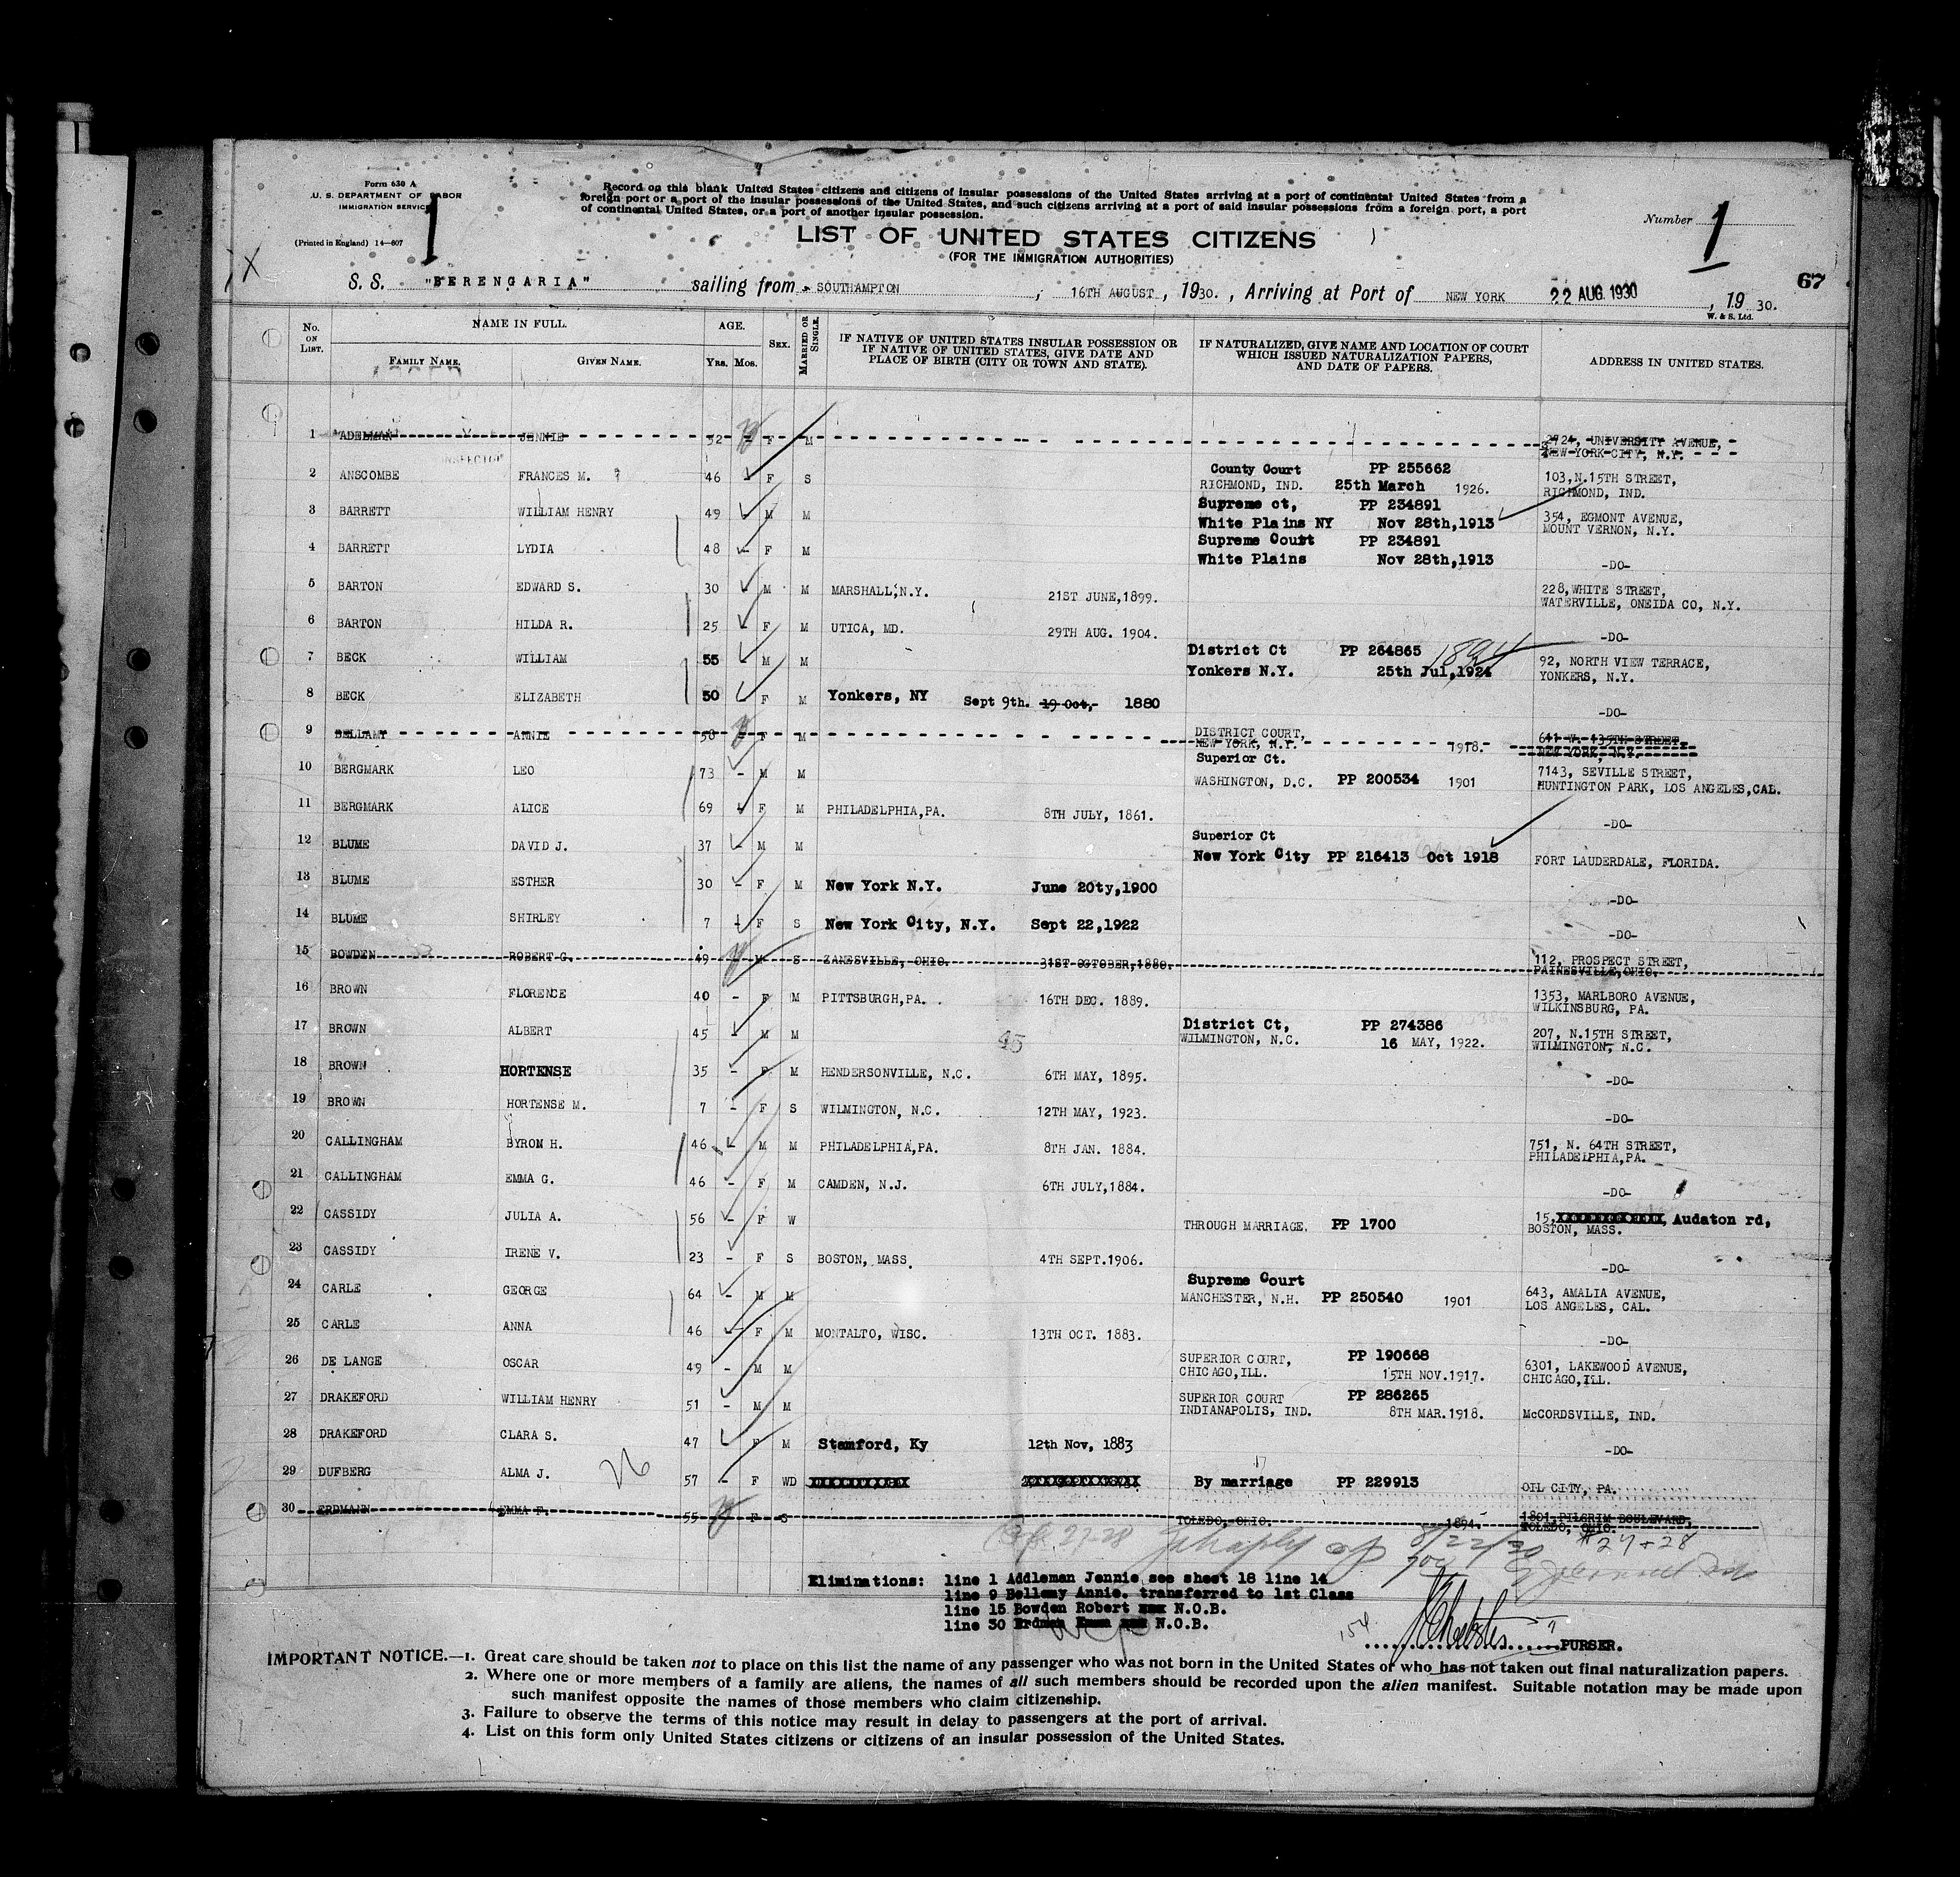 Form 630 A
U. S. DEPARTMENT OF LABOR
IMMIGRATION SERVICE
(Printed in England) 14—607
Record on this blank United States citizens and citizens of insular possessions of the United States arriving at a port of continental United States from a
foreign port or a port of the insular possessions of the United States, and such citizens arriving at a port of said insular possessions from a foreign port, a port
of continental United States, or a port of another insular possession.
LIST OF UNITED STATES CITIZENS
(FOR THE IMMIGRATION AUTHORITIES)
Number 1
1
X
67
S. S. "BERENGARIA" sailing from SOUTHAMPTON, 16TH AUGUST, 1930., Arriving at Port of NEW YORK 22 AUG. 1930, 1930.
W. & S. Ltd.
No. ON LIST. NAME IN FULL. AGE. SEX. MARRIED OR SINGLE. IF NATIVE OF UNITED STATES INSULAR POSSESSION OR IF NATIVE OF UNITED STATES, GIVE DATE AND PLACE OF BIRTH (CITY OR TOWN AND STATE). IF NATURALIZED, GIVE NAME AND LOCATION OF COURT WHICH ISSUED NATURALIZATION PAPERS, AND DATE OF PAPERS. ADDRESS IN UNITED STATES.
FAMILY NAME. GIVEN NAME. YRS. MOS.
1 ADELMAN JENNIE 52 - F M 2724, UNIVERSITY AVENUE,
NEW YORK CITY, N.Y.
INSPECTOR
2 ANSCOMBE FRANCES M. 46 - F S County Court PP 255662
RICHMOND, IND. 25th March 1926. 103, N.15TH STREET,
RICHMOND, IND.
3 BARRETT WILLIAM HENRY 49 - M M Supreme ct, PP 234891
White Plains NY Nov 28th,1913 354, EGMONT AVENUE,
MOUNT VERNON, N.Y.
4 BARRETT LYDIA 48 - F M Supreme Court PP 234891
White Plains Nov 28th,1913 -DO-
5 BARTON EDWARD S. 30 - M M MARSHALL,N.Y. 21ST JUNE,1899. 228,WHITE STREET,
WATERVILLE, ONEIDA CO, N.Y.
6 BARTON HILDA R. 25 - F M UTICA, MD. 29TH AUG. 1904. -DO-
7 BECK WILLIAM 55 - M M District Ct PP 264865 1894
Yonkers N.Y. 25th Jul,1924 92, NORTH VIEW TERRACE,
YONKERS, N.Y.
8 BECK ELIZABETH 50 - F M Yonkers, NY Sept 9th. 19 Oct,- 1880 -DO-
9 BELLAMY ANNIE 58 - F M DISTRICT COURT,
NEW YORK, N.Y. 1918. 641 W. 135TH STREET,
NEW YORK, N.Y.
10 BERGMARK LEO 73 - M M Superior Ct.
WASHINGTON, D.C. PP 200534 1901 7143, SEVILLE STREET,
HUNTINGTON PARK, LOS ANGELES,CAL.
11 BERGMARK ALICE 69 - F M PHILADELPHIA,PA. 8TH JULY, 1861. -DO-
12 BLUME DAVID J. 37 - M M Superior Ct
New York City PP 216413 Oct 1918 FORT LAUDERDALE, FLORIDA.
13 BLUME ESTHER 30 - F M New York N.Y. June 20ty,1900 -DO-
14 BLUME SHIRLEY 7 - F S New York City, N.Y. Sept 22,1922 -DO-
15 BOWDEN ROBERT G. 49 M S ZANESVILLE, OHIO. 31ST OCTOBER,1880. 112, PROSPECT STREET,
PAINESVILLE,OHIO.
16 BROWN FLORENCE 40 - F M PITTSBURGH,PA. 16TH DEC. 1889. 1353, MARLBORO AVENUE,
WILKINSBURG, PA.
17 BROWN ALBERT 45 - M M 45 District Ct, PP 274386
WILMINGTON, N.C. 16 MAY, 1922. 207, N.15TH STREET,
WILMINGTON, N.C.
18 BROWN HORTENSE 35 - F M HENDERSONVILLE, N.C. 6TH MAY, 1895. -DO-
19 BROWN HORTENSE M. 7 - F S WILMINGTON, N.C. 12TH MAY, 1923. -DO-
20 CALLINGHAM BYRON H. 46 - M M PHILADELPHIA,PA. 8TH JAN. 1884. 751, N. 64TH STREET,
PHILADELPHIA,PA.
21 CALLINGHAM EMMA G. 46 - F M CAMDEN, N.J. 6TH JULY,1884. -DO-
22 CASSIDY JULIA A. 56 - F W THROUGH MARRIAGE. PP 1700 15, Audaton rd,
BOSTON, MASS.
23 CASSIDY IRENE V. 23 - F S BOSTON, MASS. 4TH SEPT.1906. -DO-
24 CARLE GEORGE 64 - M M Supreme Court
MANCHESTER, N.H. PP 250540 1901 643, AMALIA AVENUE,
LOS ANGELES, CAL.
25 CARLE ANNA 46 - F M MONTALTO, WISC. 13TH OCT. 1883. -DO-
26 DE LANGE OSCAR 49 - M M SUPERIOR COURT, PP 190668
CHICAGO,ILL. 15TH NOV.1917. 6301, LAKEWOOD AVENUE,
CHICAGO,ILL.
27 DRAKEFORD WILLIAM HENRY 51 - M M SUPERIOR COURT PP 286265
INDIANAPOLIS, IND. 8TH MAR.1918. McCORDSVILLE, IND.
28 DRAKEFORD CLARA S. 47 - F M Stamford, Ky 12th Nov, 1883 -DO-
29 DUFBERG ALMA J. 26 57 - F WD By marriage PP 229913 OIL CITY, PA.
30 ERDMANN EMMA F. 55 F S TOLEDO, OHIO. 1894. 1801,PILGRIM BOULEVARD,
TOLEDO, OHIO.
27-28 8/22/30 #27+28
Eliminations: line 1 Addleman Jennie see sheet 18 line 14
line 9 Bellamy Annie. transferred to 1st Class
line 15 Bowden Robert N.O.B.
line 30 Erdman Emma N.O.B.
154
PURSER.
IMPORTANT NOTICE.—1. Great care should be taken not to place on this list the name of any passenger who was not born in the United States or who has not taken out final naturalization papers.
2. Where one or more members of a family are aliens, the names of all such members should be recorded upon the alien manifest. Suitable notation may be made upon
such manifest opposite the names of those members who claim citizenship.
3. Failure to observe the terms of this notice may result in delay to passengers at the port of arrival.
4. List on this form only United States citizens or citizens of an insular possession of the United States.